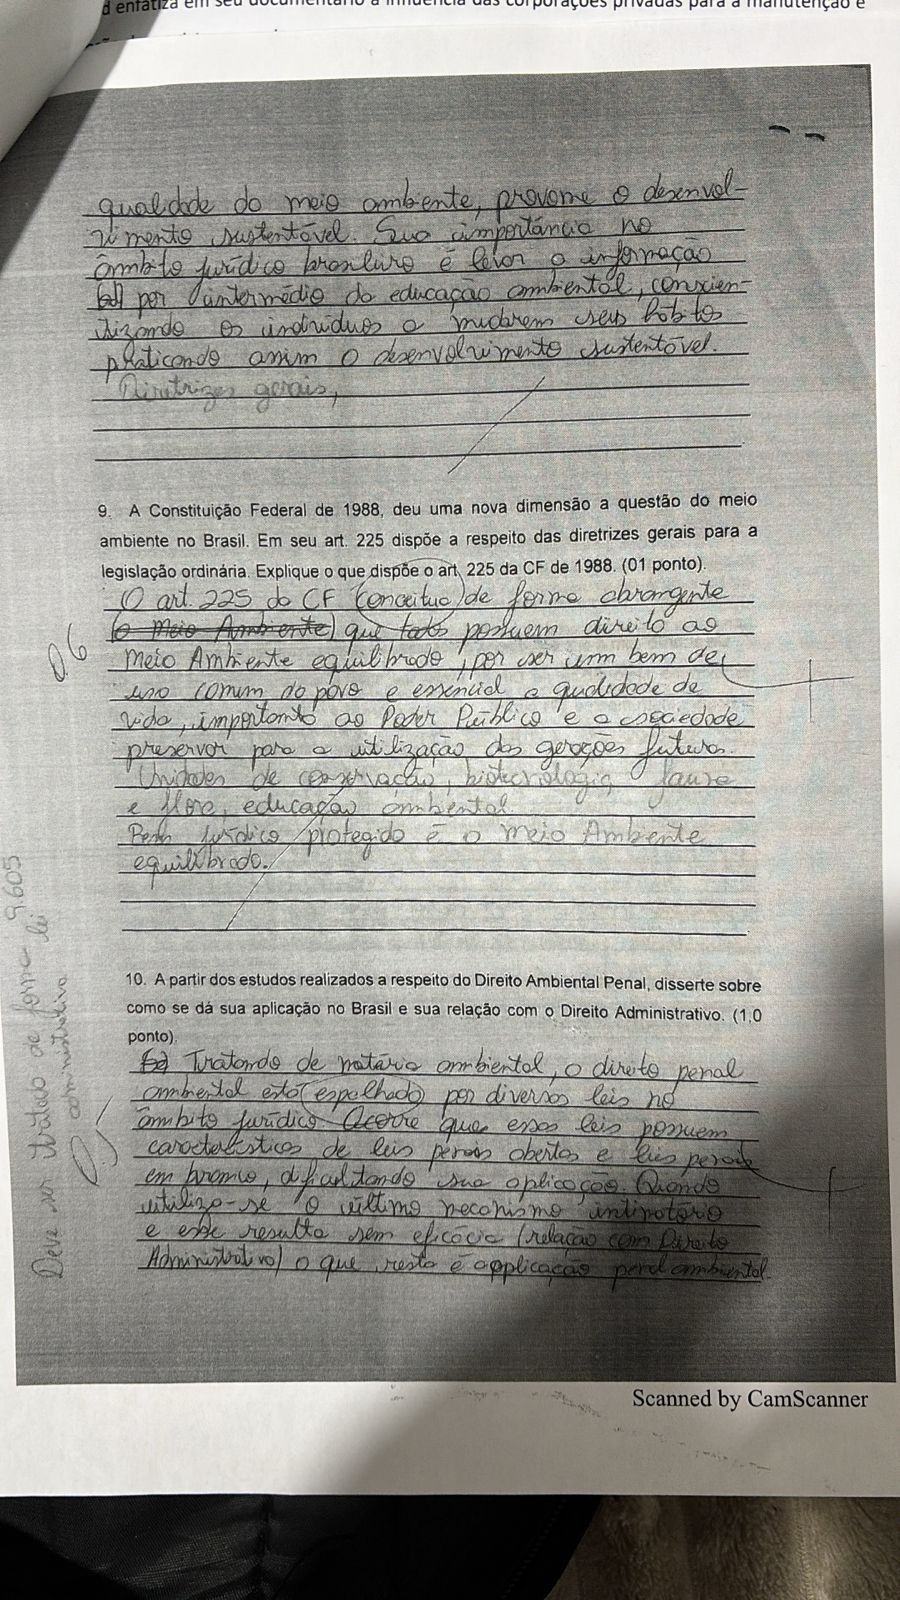 d enfatiza em seu documentário a influência das corporações privadas para a manutenção e
qualidade do meio ambiente, provome o desenvol-
vimento sustentável. Sua importância no
âmbito jurídico brasileiro é levar a informação
por intermédio da educação ambiental, conscien-
tizando os indivíduos a mudarem seus hábitos
praticando assim o desenvolvimento sustentável.
Diretrizes gerais,
9. A Constituição Federal de 1988, deu uma nova dimensão a questão do meio
ambiente no Brasil. Em seu art. 225 dispõe a respeito das diretrizes gerais para a
legislação ordinária. Explique o que dispõe o art. 225 da CF de 1988. (01 ponto).
O art. 225 da CF (conceitua) de forma abrangente
(o Meio Ambiente) que todos possuem direito ao
Meio Ambiente equilibrado, por ser um bem de
uso comum do povo e essencial a qualidade de
vida, importanto ao Poder Público e a sociedade
preservar para a utilização das gerações futuras.
Unidades de conservação, biotecnologia, fauna
e flora, educação ambiental.
Bem jurídico protegido é o Meio Ambiente
equilibrado.
0.6
10. A partir dos estudos realizados a respeito do Direito Ambiental Penal, disserte sobre
como se dá sua aplicação no Brasil e sua relação com o Direito Administrativo. (1,0
ponto).
Tratando de matéria ambiental, o direito penal
ambiental está (espalhado) por diversas leis no
âmbito jurídico. Ocorre que essas leis possuem
características de leis penais abertas e leis penais
em branco, dificultando sua aplicação. Quando
utiliza-se o último mecanismo
e esse resulta sem eficácia (relação com Direito
Administrativo) o que resta é applicação penal ambiental.
Deve ser tratado de forma lei 9.605
administrativa
Scanned by CamScanner